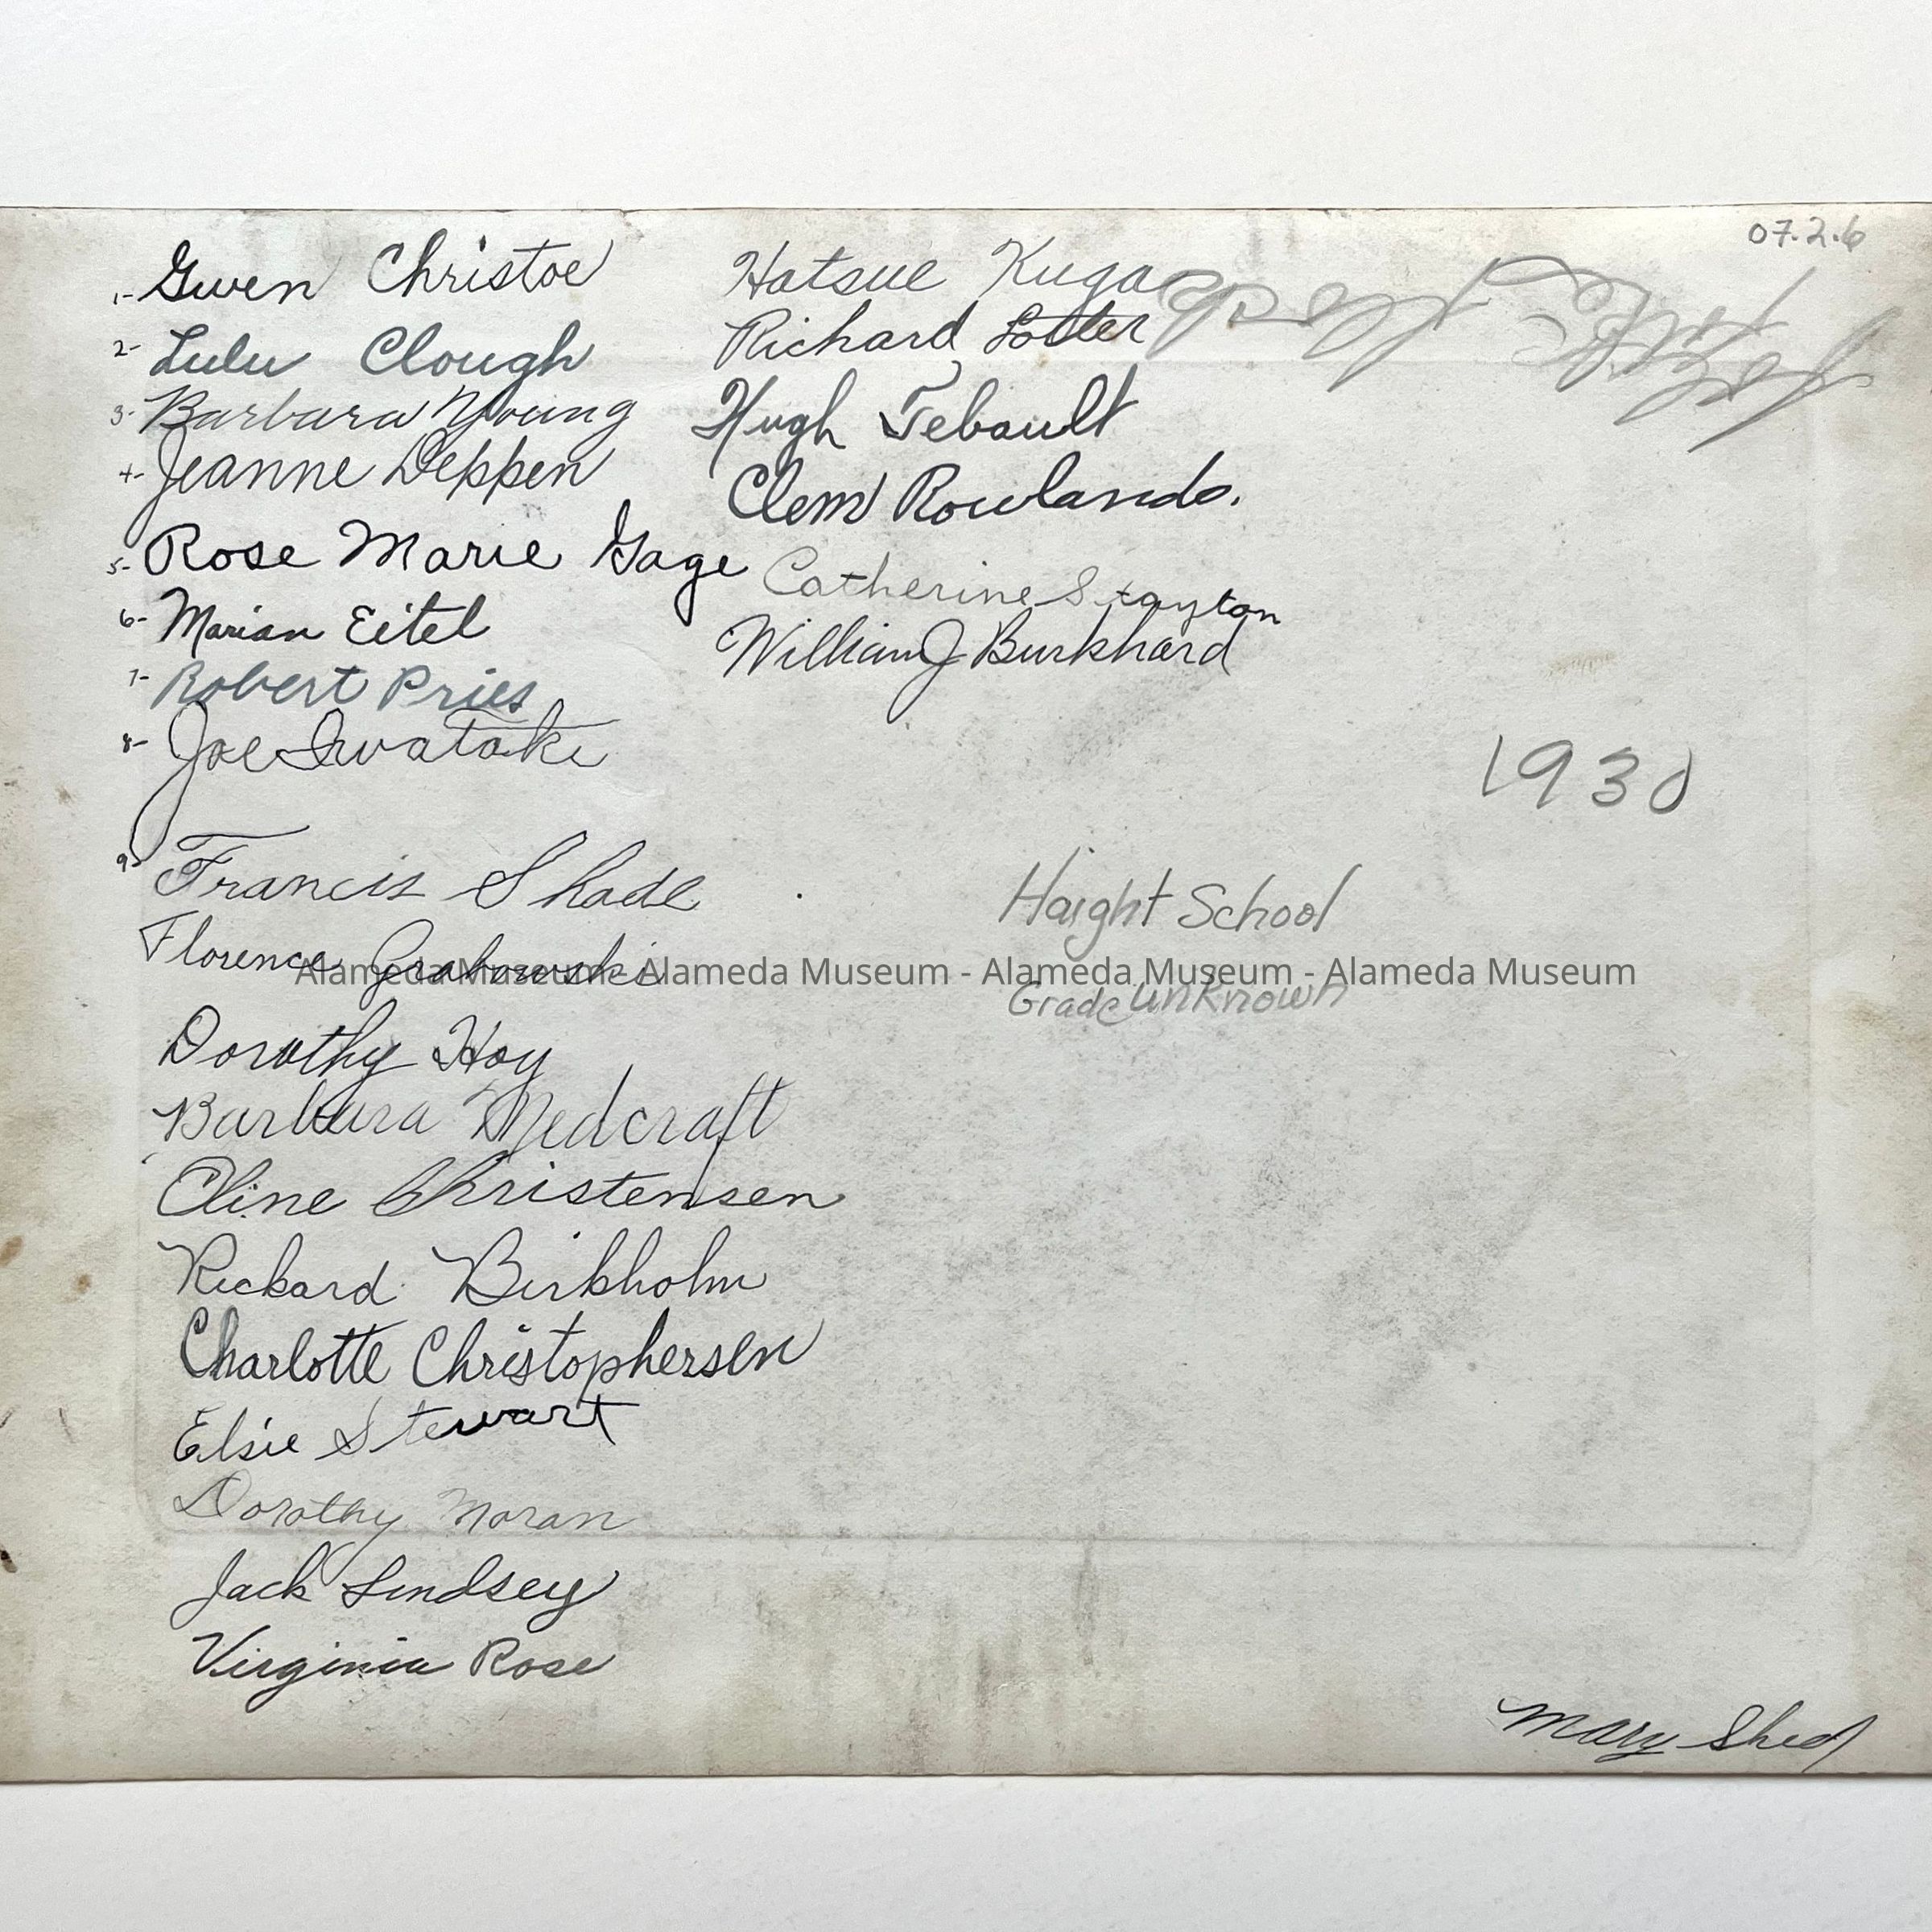 07.2.6
1- Gwen Christoe
2- Lulu Clough
3- Barbara Young
4- Jeanne Deppen
5- Rose Marie Gage
6- Marian Eitel
7- Robert Pries
8- Joe Iwataki
9- Francis Shade
Florence Grabowski
Dorothy Hoy
Barbara Medcraft
Cline Christensen
Rickard Birkholm
Charlotte Christophersen
Elsie Stewart
Dorothy Moran
Jack Lindsey
Virginia Rose
Hatsue Kuga
Richard
Hugh Tebault
Clem Rowlands.
Catherine Stayton
William J Burkhard
1930
Haight School
Grade unknown
Alameda Museum - Alameda Museum - Alameda Museum - Alameda Museum
Mary Shed